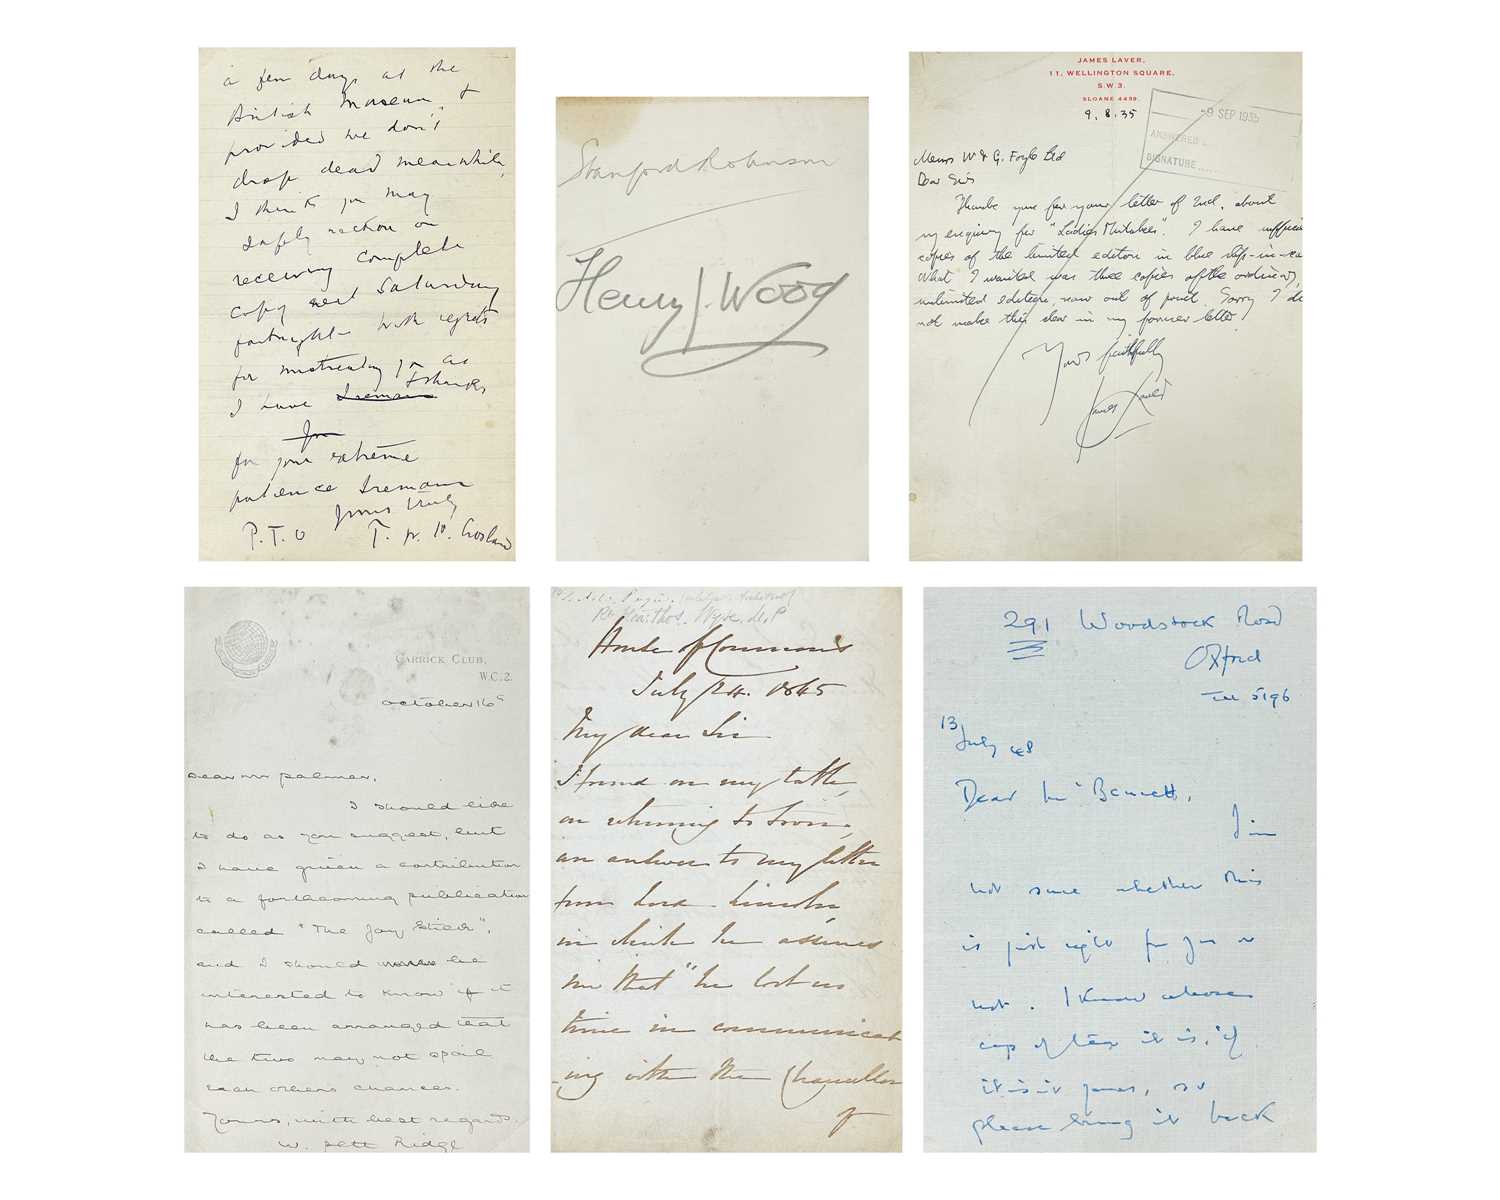 a few days at the
British Museum, &
provided we don't
drop dead meanwhile,
I think you may
safely reckon on
receiving complete
copy next Saturday
fortnight— With regrets
for mistreating you as
I have I remain & thanks
for
for your extreme
patience I remain
Yours truly
P.T.O T. W. H. Crosland
Stanford Robinson
Henry J. Wood
JAMES LAVER,
11, WELLINGTON SQUARE,
S.W.3.
SLOANE 4439.
9.8.35
-9 SEP 1935
ANSWERED
SIGNATURE
Messrs W & G. Foyle Ltd
Dear Sirs
Thank you for your letter of 2nd. about
my enquiry for "Ladies Mistakes". I have
copies of the limited edition in blue slip-in-ca
What I wanted was three copies of the ordinary,
unlimited edition, now out of print. Sorry I di
not make this clear in my former letter.
Yours faithfully
James Laver
GARRICK CLUB,
W.C.2.
October 16
Dear Mr Palmer,
I should like
to do as you suggest, but
I have given a contribution
to a forthcoming publication
called "The Joy Stick",
and I should be
interested to know if it
has been arranged that
the two may not spoil
each others chances.
Yours, with best regards,
W. Pett Ridge
Thos. Wyse. M.P
House of Commons
July 24. 1845
My dear Sir
I found on my table,
on returning to town,
an answer to my letter
from Lord Lincoln,
in which he assures
me that "he lost no
time in communicat
-ing with the Chancellor
of
291 Woodstock Road
Oxford
Tel 5196
13
July 48
Dear Mr Bennett,
I'm
not sure whether this
is just right for you or
not. I know whose
cup of tea it is, if
it is it yours, so
please bung it back